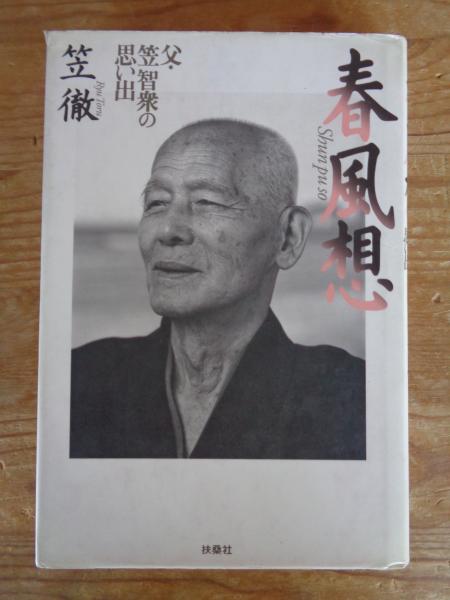 春風想
Shunpuso
父・
笠智衆の
思い出
笠徹
Ryu Toru
扶桑社